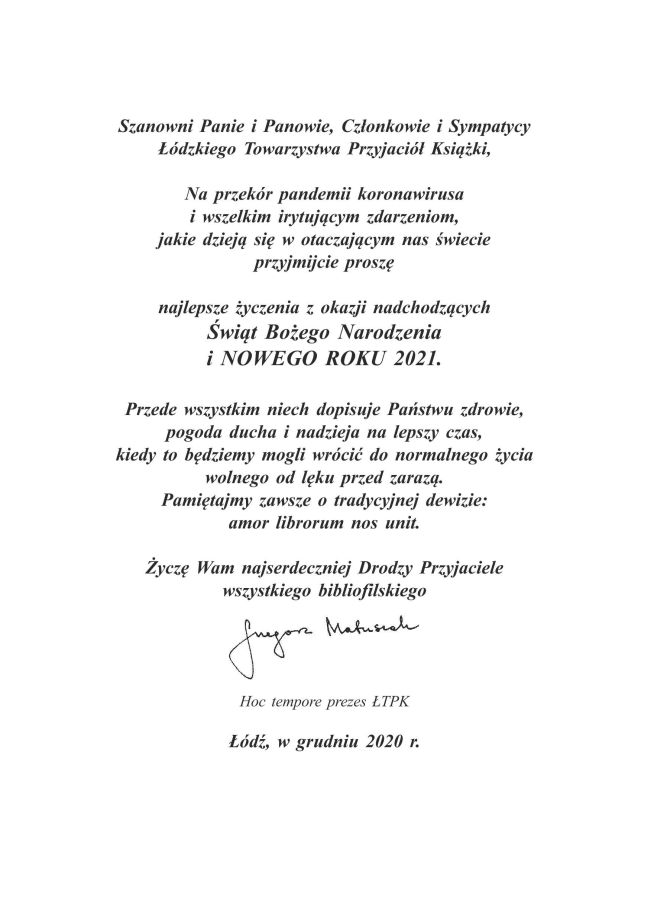 Szanowni Panie i Panowie, Członkowie i Sympatycy
Łódzkiego Towarzystwa Przyjaciół Książki,
Na przekór pandemii koronawirusa
i wszelkim irytującym zdarzeniom,
jakie dzieją się w otaczającym nas świecie
przyjmijcie proszę
najlepsze życzenia z okazji nadchodzących
Świąt Bożego Narodzenia
i NOWEGO ROKU 2021.
Przede wszystkim niech dopisuje Państwu zdrowie,
pogoda ducha i nadzieja na lepszy czas,
kiedy to będziemy mogli wrócić do normalnego życia
wolnego od lęku przed zarazą.
Pamiętajmy zawsze o tradycyjnej dewizie:
amor librorum nos unit.
Życzę Wam najserdeczniej Drodzy Przyjaciele
wszystkiego bibliofilskiego
Grzegorz Matusiak
Hoc tempore prezes ŁTPK
Łódź, w grudniu 2020 r.